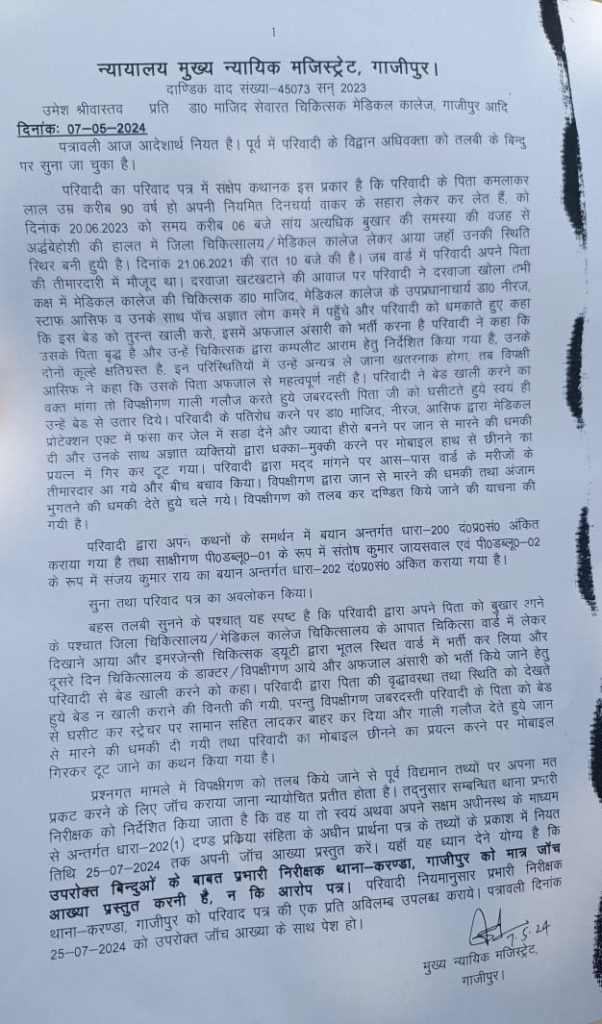 1
न्यायालय मुख्य न्यायिक मजिस्ट्रेट, गाजीपुर।
दाण्डिक वाद संख्या-45073 सन् 2023
उमेश श्रीवास्तव प्रति डा0 माजिद सेवारत चिकित्सक मेडिकल कालेज, गाजीपुर आदि
दिनांकः 07-05-2024
पत्रावली आज आदेशार्थ नियत है। पूर्व में परिवादी के विद्वान अधिवक्ता को तलबी के बिन्दु
पर सुना जा चुका है।
परिवादी का परिवाद पत्र में संक्षेप कथानक इस प्रकार है कि परिवादी के पिता कमलाकर
लाल उम्र करीब 90 वर्ष हो अपनी नियमित दिनचर्या वाकर के सहारा लेकर कर लेत हैं, को
दिनांक 20.06.2023 को समय करीब 06 बजे सांय अत्यधिक बुखार की समस्या की वजह से
अर्द्धबेहोशी की हालत में जिला चिकित्सालय/मेडिकल कालेज लेकर आया जहाँ उनकी स्थिति
स्थिर बनी हुयी है। दिनांक 21.06.2021 की रात 10 बजे की है। जब वार्ड में परिवादी अपने पिता
की तीमारदारी में मौजूद था। दरवाजा खटखटाने की आवाज पर परिवादी ने दरवाजा खोला तभी
कक्ष में मेडिकल कालेज की चिकित्सक डा0 माजिद, मेडिकल कालेज के उपप्रधानाचार्य डा0 नीरज,
स्टाफ आसिफ व उनके साथ पाँच अज्ञात लोग कमरे में पहुँचे और परिवादी को धमकाते हुए कहा
कि इस बेड को तुरन्त खाली करो, इसमें अफजाल अंसारी को भर्ती करना है परिवादी ने कहा कि
उसके पिता बृद्ध है और उन्हें चिकित्सक द्वारा कम्पलीट आराम हेतु निर्देशित किया गया है, उनके
दोनों कूल्हे क्षतिग्रस्त है, इन परिस्थितियों में उन्हें अन्यत्र ले जाना खतरनाक होगा, तब विपक्षी
आसिफ ने कहा कि उसके पिता अफजाल से महत्वपूर्ण नहीं है। परिवादी ने बेड खाली करने का
वक्त मांगा तो विपक्षीगण गाली गलौज करते हुये जबरदस्ती पिता जी को घसीटते हुये स्वयं ही
उन्हें बेड से उतार दिये। परिवादी के पतिरोध करने पर डा0 माजिद, नीरज, आसिफ द्वारा मेडिकल
प्रोटेक्शन एक्ट में फंसा कर जेल में सड़ा देने और ज्यादा हीरो बनने पर जान से मारने की धमकी
दी और उनके साथ अज्ञात व्यक्तियों द्वारा धक्का-मुक्की करने पर मोबाइल हाथ से छीनने का
प्रयत्न में गिर कर टूट गया। परिवादी द्वारा मद्द मांगने पर आस-पास वार्ड के मरीजों के
तीमारदार आ गये और बीच बचाव किया। विपक्षीगण द्वारा जान से मारने की धमकी तथा अंजाम
भुगतने की धमकी देते हुये चले गये। विपक्षीगण को तलब कर दण्डित किये जाने की याचना की
गयी है।
परिवादी द्वारा अपने कथनों के समर्थन में बयान अन्तर्गत धारा-200 दं0प्र0सं0 अंकित
कराया गया है तथा साक्षीगण पी0डब्लू0-01 के रूप में संतोष कुमार जायसवाल एवं पी0डब्लू0-02
के रूप में संजय कुमार राय का बयान अन्तर्गत धारा-202 दं0प्र0सं0 अंकित कराया गया है।
सुना तथा परिवाद पत्र का अवलोकन किया।
बहस तलबी सुनने के पश्चात् यह स्पष्ट है कि परिवादी द्वारा अपने पिता को बुखार आने
के पश्चात जिला चिकित्सालय/मेडिकल कालेज चिकित्सालय के आपात चिकित्सा वार्ड में लेकर
दिखाने आया और इमरजेन्सी चिकित्सक ड्यूटी द्वारा भूतल स्थित वार्ड में भर्ती कर लिया और
दूसरे दिन चिकित्सालय के डाक्टर/विपक्षीगण आये और अफजाल अंसारी को भर्ती किये जाने हेतु
परिवादी से बेड खाली करने को कहा। परिवादी द्वारा पिता की वृद्धावस्था तथा स्थिति को देखते
हुये बेड न खाली कराने की विनती की गयी, परन्तु विपक्षीगण जबरदस्ती परिवादी के पिता को बेड
से घसीट कर स्ट्रेचर पर सामान सहित लादकर बाहर कर दिया और गाली गलौज देते हुये जान
से मारने की धमकी दी गयी तथा परिवादी का मोबाइल छीनने का प्रयत्न करने पर मोबाइल
गिरकर टूट जाने का कथन किया गया है।
प्रश्नगत मामले में विपक्षीगण को तलब किये जाने से पूर्व विद्यमान तथ्यों पर अपना मत
प्रकट करने के लिए जाँच कराया जाना न्यायोचित प्रतीत होता है। तद्नुसार सम्बन्धित थाना प्रभारी
निरीक्षक को निर्देशित किया जाता है कि वह या तो स्वयं अथवा अपने सक्षम अधीनस्थ के माध्यम
से अन्तर्गत धारा-202(1) दण्ड प्रक्रिया संहिता के अधीन प्रार्थना पत्र के तथ्यों के प्रकाश में नियत
तिथि 25-07-2024 तक अपनी जाँच आख्या प्रस्तुत करें। यहाँ यह ध्यान देने योग्य है कि
उपरोक्त बिन्दुओं के बाबत प्रभारी निरीक्षक थाना-करण्डा, गाजीपुर को मात्र जाँच
आख्या प्रस्तुत करनी है, न कि आरोप पत्र। परिवादी नियमानुसार प्रभारी निरीक्षक
थाना-करण्डा, गाजीपुर को परिवाद पत्र की एक प्रति अविलम्ब उपलब्ध कराये। पत्रावली दिनांक
25-07-2024 को उपरोक्त जाँच आख्या के साथ पेश हो।
7.5.24
मुख्य न्यायिक मजिस्ट्रेट,
गाजीपुर।